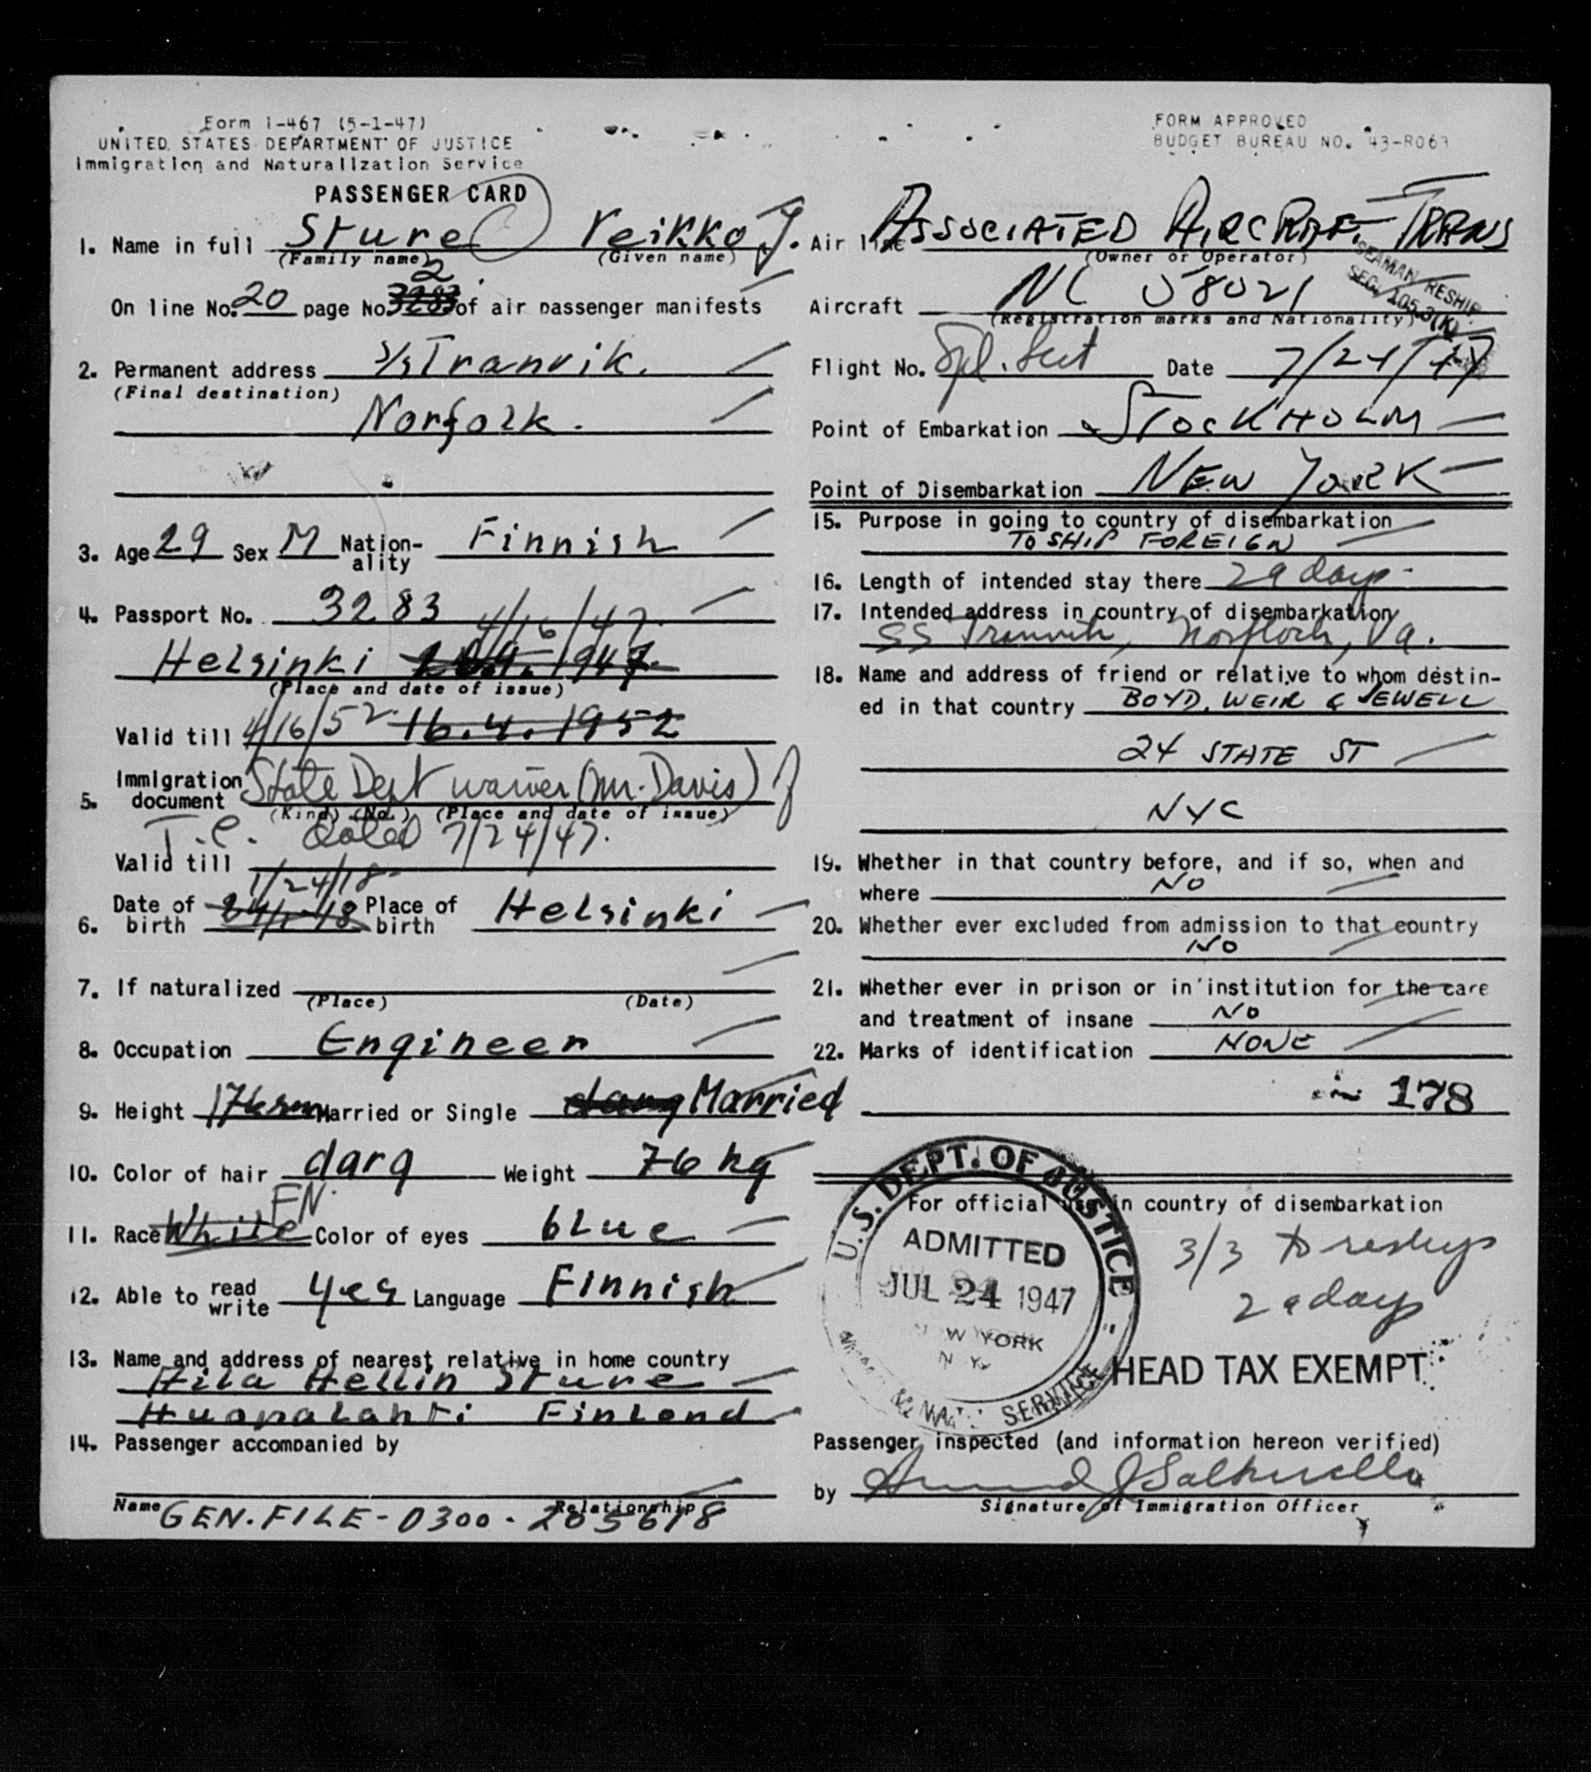 Form I-467 (5-1-47)
UNITED STATES DEPARTMENT OF JUSTICE
Immigration and Naturalization Service
PASSENGER CARD
1. Name in full Sture Veikko J.
(Family name) (Given name)
2
On line No. 20 page No. 3283 of air passenger manifests
2. Permanent address S/S Tranvik.
(Final destination)
Norfolk.
3. Age 29 Sex M Nation-ality Finnish
4. Passport No. 3283
4/16/47.
Helsinki 1947
(Place and date of issue)
Valid till 4/16/52 16.4.1952
5. Immigration document State Dept waiver (Mr. Davis)
(Kind) (No.) (Place and date of issue)
T.C. dated 7/24/47.
Valid till
1/24/18
6. Date of birth 24/1-18 Place of birth Helsinki
7. If naturalized
(Place) (Date)
8. Occupation Engineer
9. Height 176 cm Married or Single darq Married
10. Color of hair darq Weight 76 kg
FN.
11. Race White Color of eyes blue
12. Able to read write yes Language Finnish
13. Name and address of nearest relative in home country
Hellin Sture
Huopalahti Finlond
14. Passenger accompanied by
Name Relationship
GEN. FILE - 0300 - 205618
FORM APPROVED
BUDGET BUREAU NO. 43-R063
Air line ASSOCIATED AIRCRAFT TRANS
(Owner or Operator)
SEAMAN RESHIP.
SEC. 105.3(K)
Aircraft NC 58021
(Registration marks and Nationality)
Flight No. Spl. Date 7/24/47
Point of Embarkation STOCKHOLM
Point of Disembarkation NEW YORK
15. Purpose in going to country of disembarkation
TO SHIP FOREIGN
16. Length of intended stay there 29 days
17. Intended address in country of disembarkation
SS Tranvik, Norfolk, Va.
18. Name and address of friend or relative to whom destin-
ed in that country BOYD, WEIR & SEWELL
24 STATE ST
NYC
19. Whether in that country before, and if so, when and
where NO
20. Whether ever excluded from admission to that country
NO
21. Whether ever in prison or in institution for the care
and treatment of insane NO
22. Marks of identification NONE
178
For official use in country of disembarkation
U.S. DEPT. OF JUSTICE
ADMITTED
JUL 24 1947
NEW YORK
N.Y.
SERVICE
3/3 to reship
29 days
HEAD TAX EXEMPT
Passenger inspected (and information hereon verified)
by
Signature of Immigration Officer